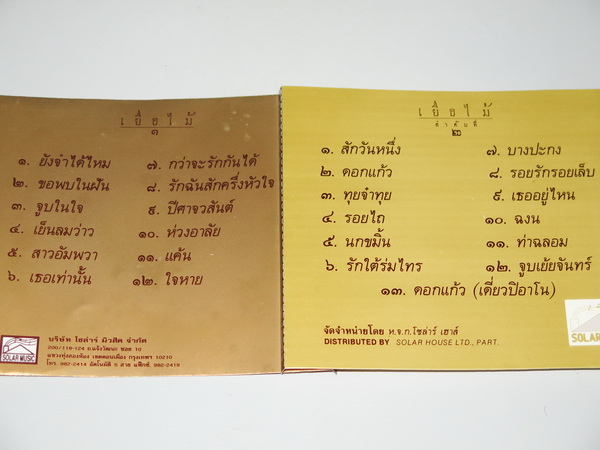 เยื่อไม้
๓
๑. ยังจำได้ไหม
๒. ขอพบในฝัน
๓. จูบในใจ
๔. เย็นลมว่าว
๕. สาวอัมพวา
๖. เธอเท่านั้น
๗. กว่าจะรักกันได้
๘. รักฉันสักครึ่งหัวใจ
๙. ปีศาจวสันต์
๑๐. ห่วงอาลัย
๑๑. แค้น
๑๒. ใจหาย
SOLAR MUSIC
บริษัท โซล่าร์ มิวสิค จำกัด
200/118-124 ถ.แจ้งวัฒนะ ซอย 10
แขวงทุ่งสองห้อง เขตดอนเมือง กรุงเทพฯ 10210
โทร. 982-2414 อัตโนมัติ 5 สาย แฟ็กซ์. 982-2419
เยื่อไม้
ลำดับที่
๒
๑. สักวันหนึ่ง
๒. ดอกแก้ว
๓. ทุยจ๋าทุย
๔. รอยไถ
๕. นกขมิ้น
๖. รักใต้ร่มไทร
๗. บางปะกง
๘. รอยรักรอยเล็บ
๙. เธออยู่ไหน
๑๐. ฉงน
๑๑. ท่าฉลอม
๑๒. จูบเย้ยจันทร์
๑๓. ดอกแก้ว (เดี่ยวปิอาโน)
จัดจำหน่ายโดย ห.จ.ก.โซล่าร์ เฮาส์
DISTRIBUTED BY SOLAR HOUSE LTD., PART.
SOLAR